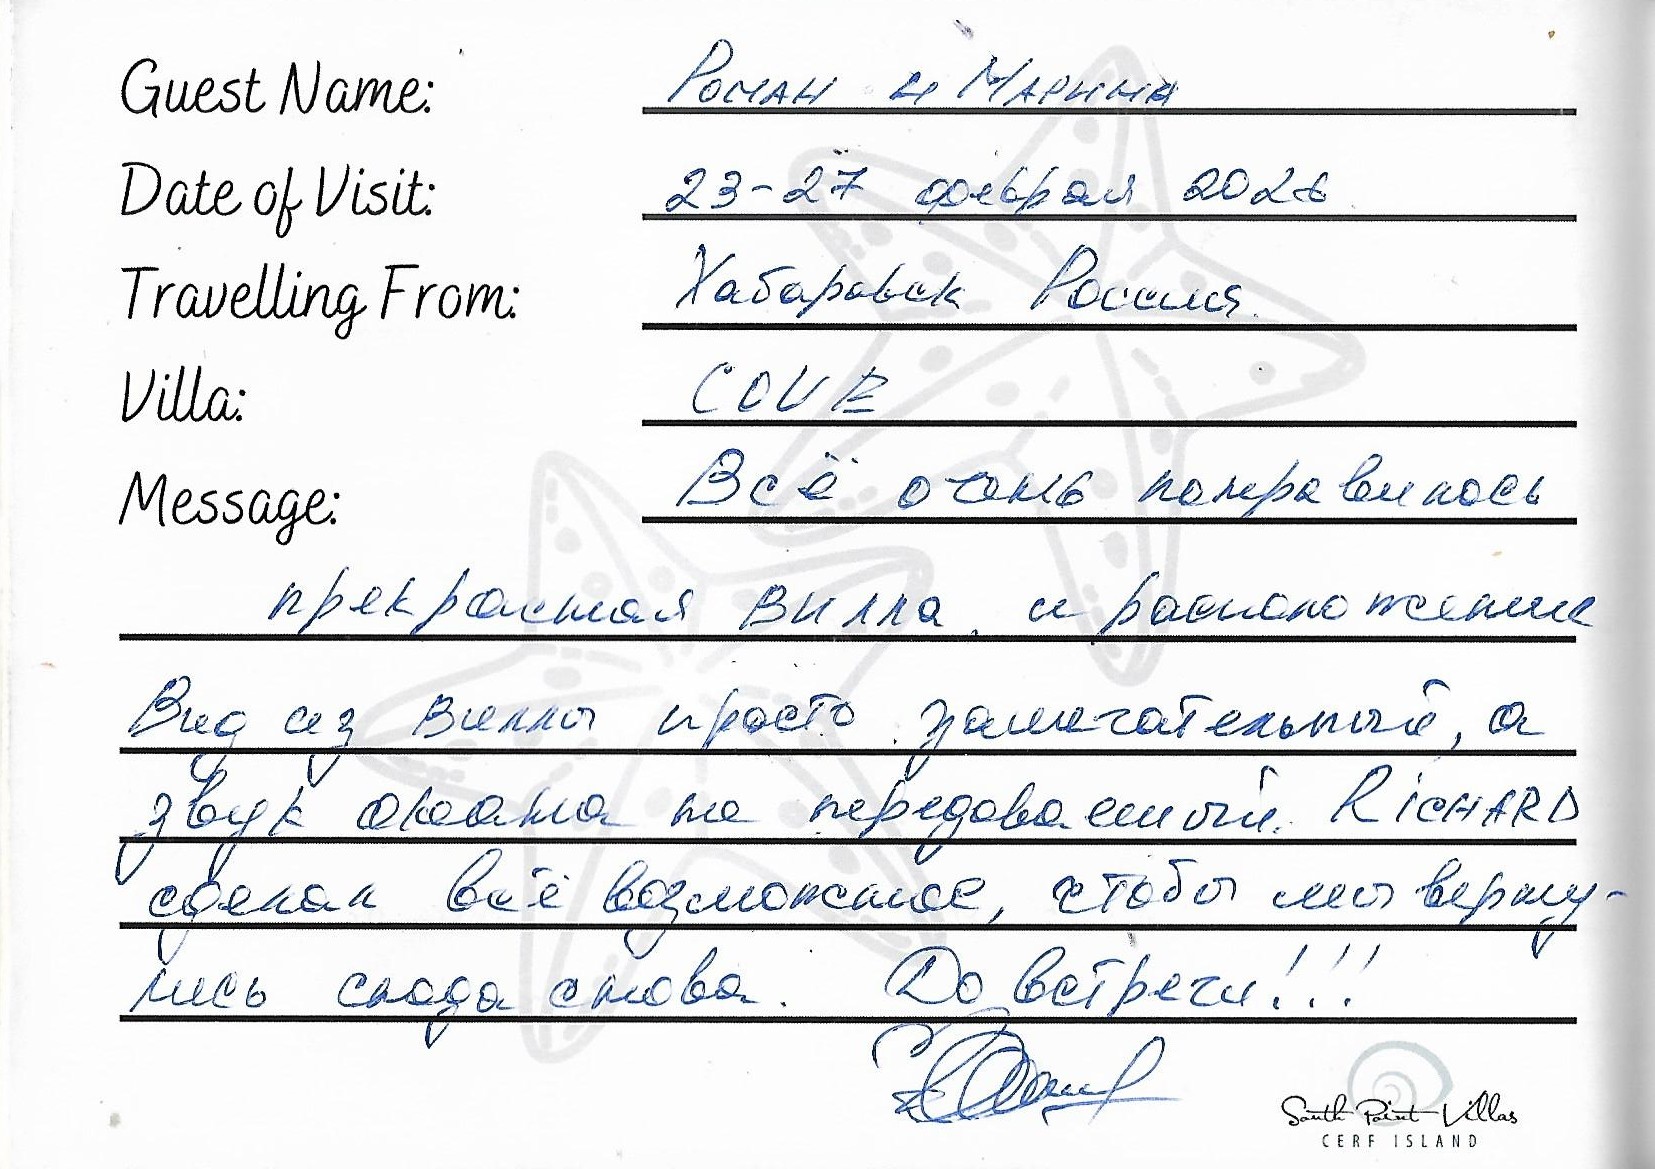 Guest Name: Роман и Марина
Date of Visit: 23-27 февраля 2026
Travelling From: Хабаровск Россия.
Villa: COVE
Message: Всё очень понравилось
прекрасная вилла, и расположение
Вид из виллы просто замечательный, а
звук океана не передоваемый. RiCHARD
сделал всё возможное, чтобы мы верну-
лись сюда снова. До встречи!!!
South Point Villas
CERF ISLAND